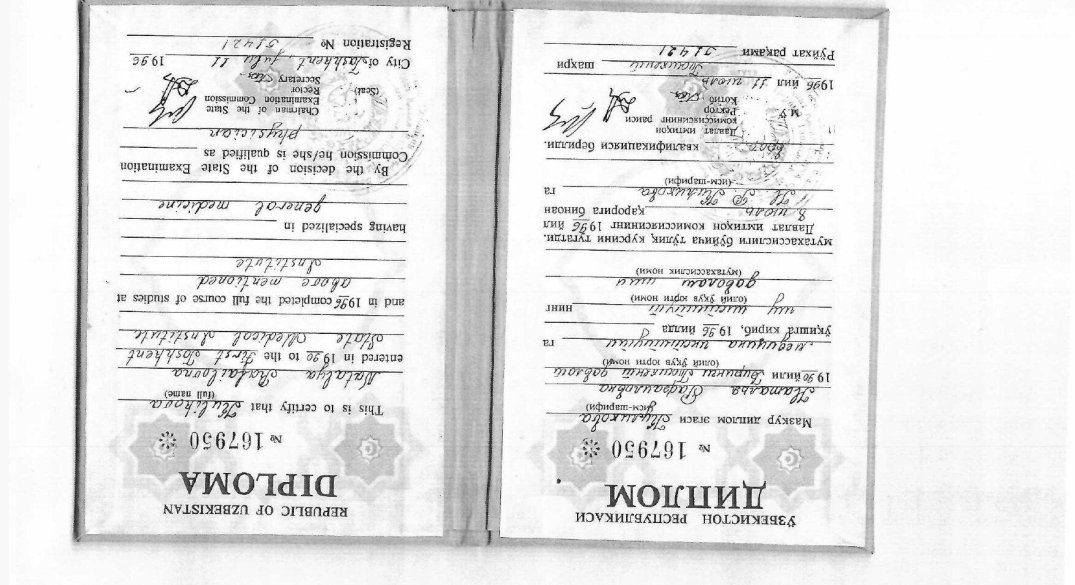 ЎЗБЕКИСТОН РЕСПУБЛИКАСИ
ДИПЛОМ
№ 167950
Мазкур диплом эгаси Куликова
(исм-шарифи)
Наталья Рафаиловна
1990 йили Биринчи Тошкент давлат
(олий ўқув юрти номи)
медицина институти га
ўқишга кириб, 1996 йилда
шу институт нинг
(олий ўқув юрти номи)
даволаш иши
(мутахассислик номи)
мутахассислиги бўйича тўлиқ курсини тугатди.
Давлат имтиҳон комиссиясининг 1996 йил
8 июль қарорига биноан
Н. Р. Куликова га
(исм-шарифи)
врач квалификацияси берилди.
Давлат имтиҳон
комиссиясининг раиси
Ректор
М.Ў. Котиб
1996 йил 11 июль
Тошкент шаҳри
Рўйхат рақами 51421
REPUBLIC OF UZBEKISTAN
DIPLOMA
№ 167950
This is to certify that Kulikova
(full name)
Natalya Rafailovna
entered in 1990 to the First Tashkent
State Medical Institute
and in 1996 completed the full course of studies at
above mentioned
Institute
having specialized in
general medicine
By the decision of the State Examination
Commission he/she is qualified as
physician
Chairman of the State
Examination Commission
(Seal) Rector
Secretary
City of Tashkent, July 11 1996
Registration № 51421